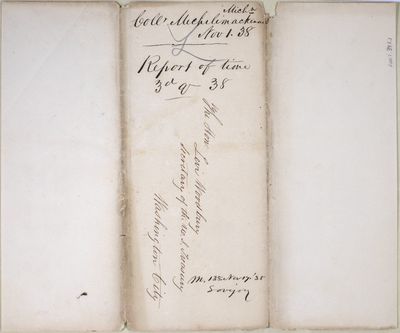 Mich n
Coll r Michilimackinac
Nov 1. 38
Report of time
3d qr 38
The Hon
Levi Woodbury
Secretary of the U.S. Treasury
Washington City
Nov 17 '38
Lovejoy